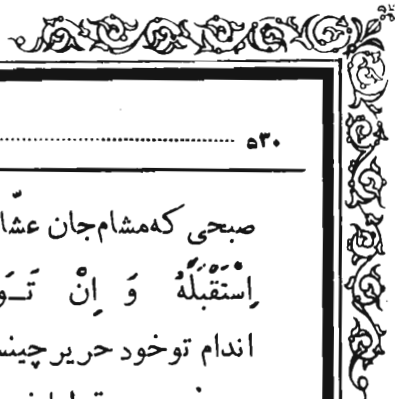 ۵۳۰
صبحی که‌مشام‌جان عشّا
اِسْتَقْبَلَهُ وَ اِنْ تَـوَ
اندام تو خود حریر چینس